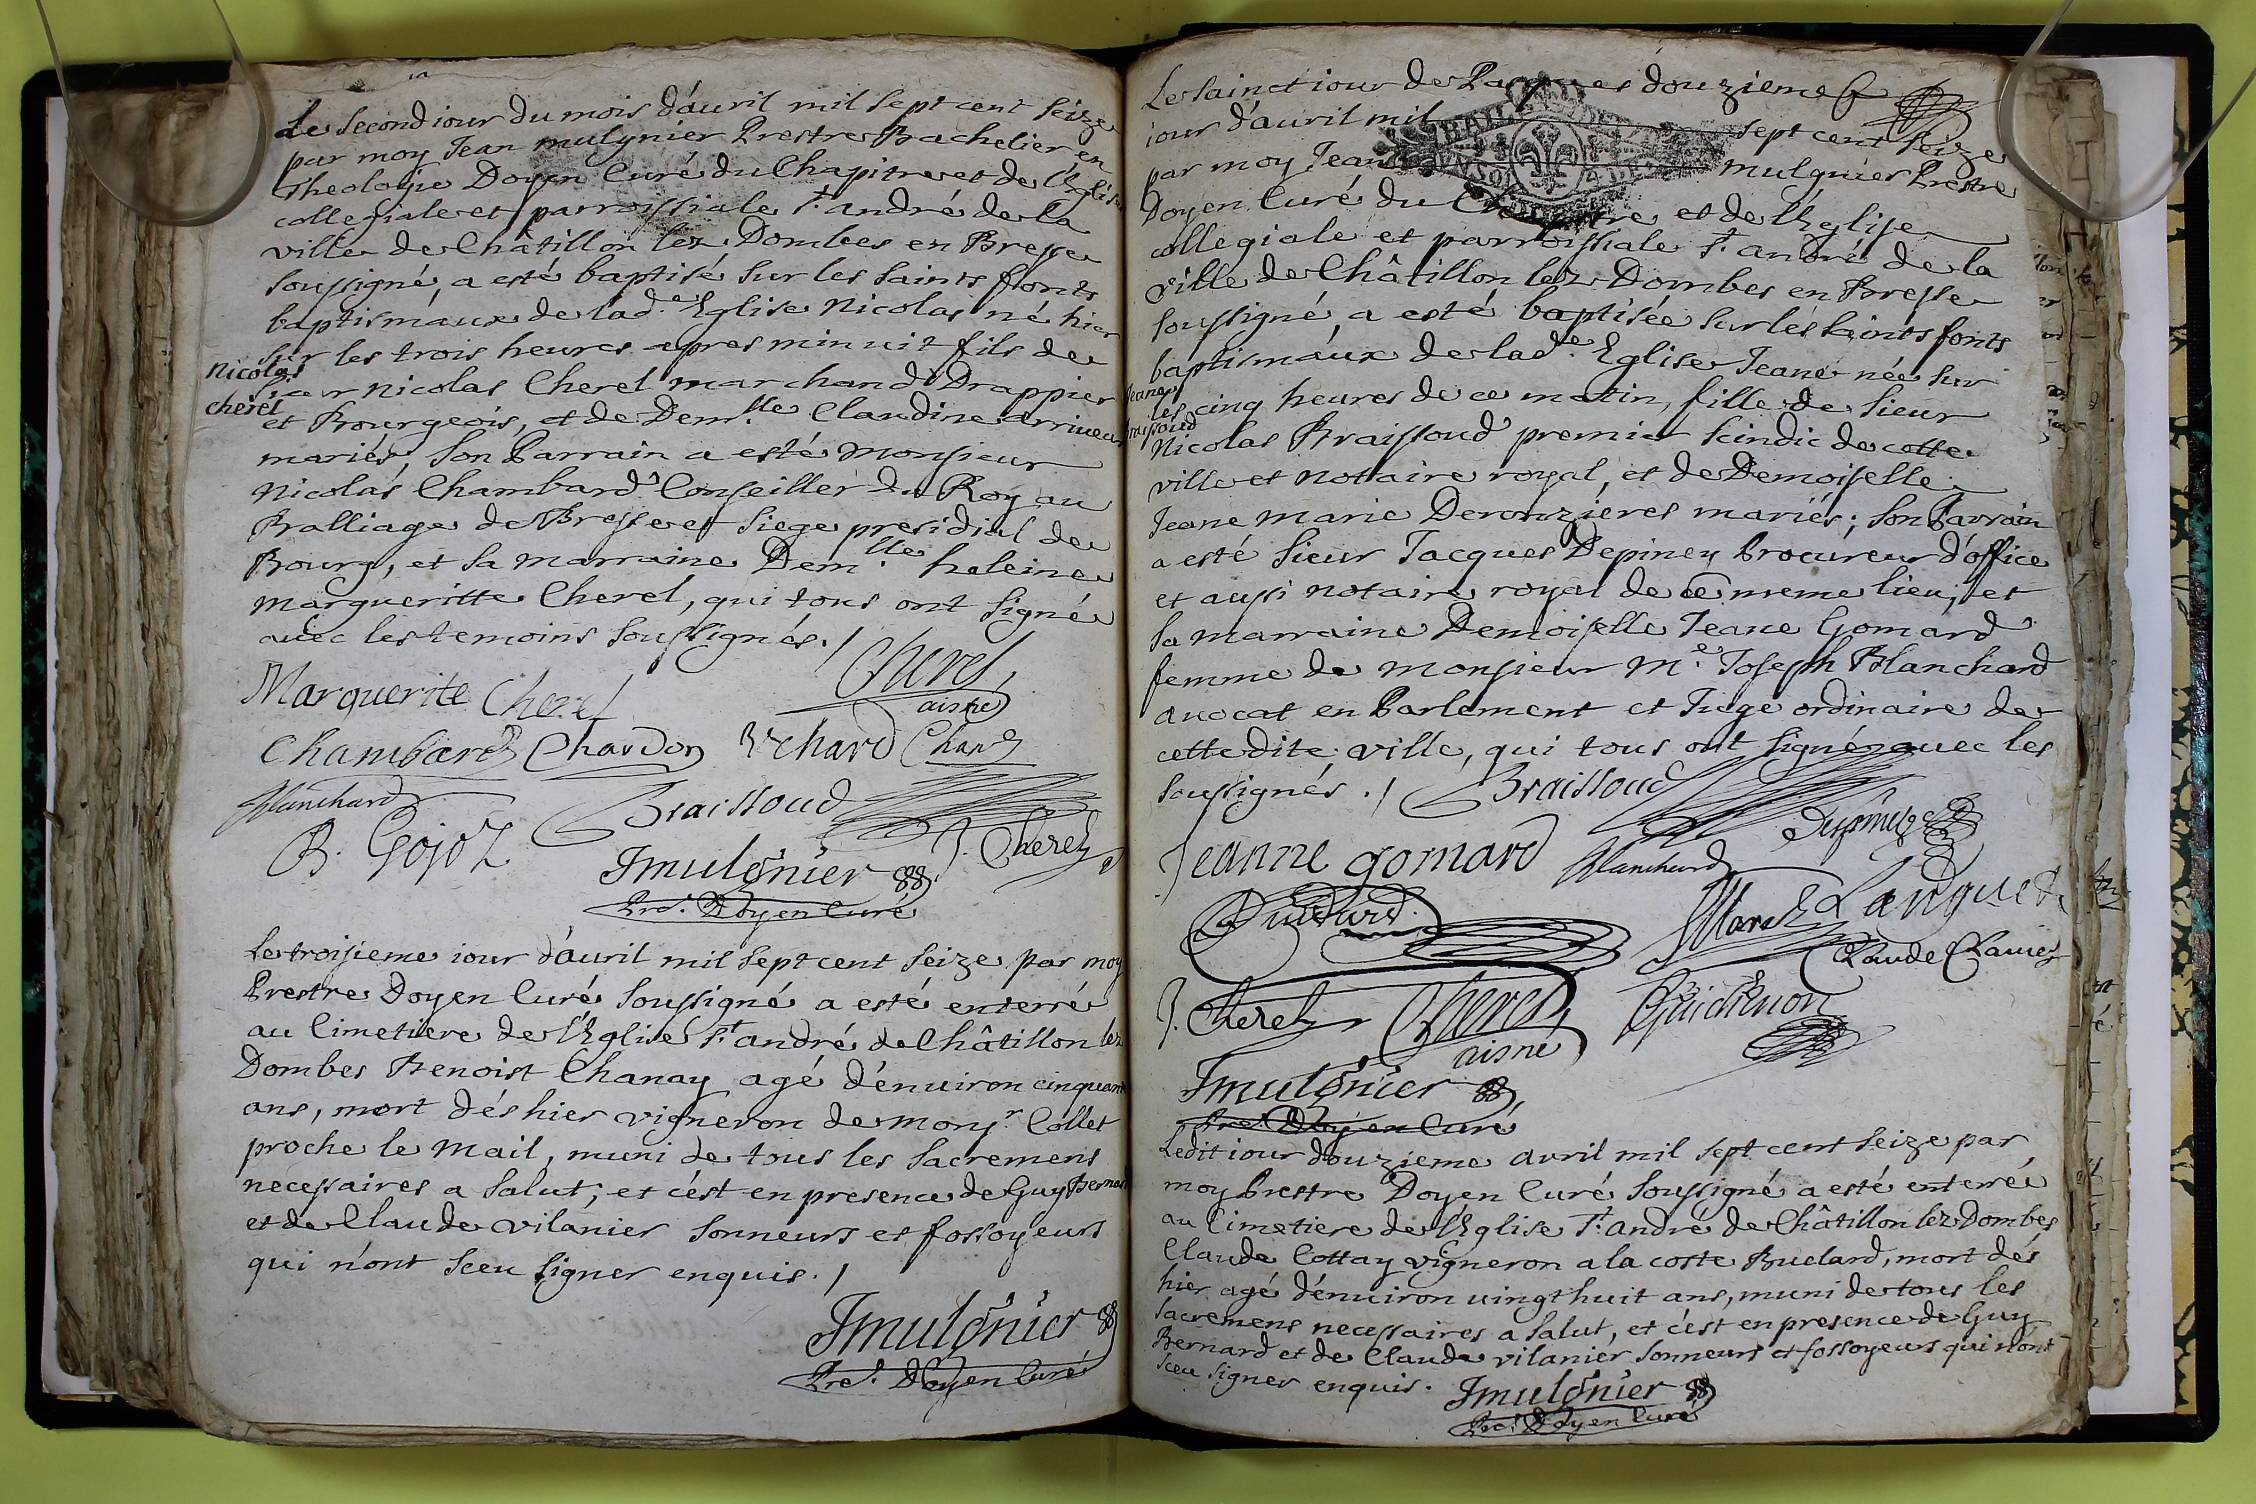 Le second iour du mois d'auril mil sept cent seize
par moy Jean mulgnier Prestre Bachelier en
Theologie Doyen Curé du Chapitre et de l'Eglise
collegiale et parroissiale St. andré de la
ville de Châtillon lez Dombes en Bresse
soussigné, a esté baptisé sur les saints fonts
baptismaux de lade. Eglise Nicolas né hier
sur les trois heures apres minuit fils de
Nicolas
cherel
sieur Nicolas Cherel marchand Drappier
et Bourgeois, et de Demlle. Claudine arriueur
mariés, son Parrain a esté Monsieur
Nicolas Chambard Conseiller du Roy au
Balliage de Bresse et siege presidial de
Bourg, et sa marraine Demlle. heleine
margueritte Cherel, qui tous ont signé
auec les temoins soussignés./
Marguerite Cherel Cherel aisné
Chambard Chardon Richard Chan
Blanchard Braissoud
B. Gojoz J. Cherel
Jmulgnier
Pre. Doyen Curé
Le troisieme iour d'auril mil sept cent seize par moy
Prestre Doyen Curé soussigné a esté enterré
au Cimetiere de l'Eglise St. andré de Châtillon lez
Dombes Benoist Chanay agé d'enuiron cinquante
ans, mort dés hier vigneron de Monsr. Collet
proche le Mail, muni de tous les sacremens
necessaires a salut; et c'est en presence de Guy Bernard
et de Claude vilanier sonneurs et fossoyeurs
qui n'ont sceu signer enquis./
Jmulgnier
Pre. Doyen Curé
Le sainct iour de Pasques douzieme
iour d'auril mil sept cent seize
par moy Jean mulgnier Prestre
Doyen Curé du Chapitre et de l'Eglise
collegiale et parroissiale St. andré de la
ville de Châtillon lez Dombes en Bresse
soussigné, a esté baptisée sur les saints fonts
baptismaux de lade. Eglise Jeane née sur
Jeane
Braissoud
les cinq heures de ce matin, fille de sieur
Nicolas Braissoud premier scindic de cette
ville et notaire royal, et de Demoiselle
Jeane marie Deronzieres mariés; son Parrain
a esté sieur Jacques Depiney Procureur d'office
et aussi notaire royal de ce meme lieu; et
sa marraine Demoiselle Jeane Gomard
femme de monsieur Me. Joseph Blanchard
auocat en Parlement et Juge ordinaire de
cette dite ville, qui tous ont signés auec les
soussignés./ Braissoud
Jeanne gomard Blanchard
Languet
Claude Chanier
J. Cherel Cherel aisné Guichenon
Jmulgnier
Pre. Doyen Curé
Ledit iour douzieme avril mil sept cent seize par
moy Prestre Doyen Curé soussigné a esté enterré
au Cimetiere de l'Eglise St. andré de Châtillon lez Dombes
Claude Cottay vigneron a la coste Buelard, mort dés
hier agé d'enuiron uingt huit ans, muni de tous les
sacremens necessaires a salut, et c'est en presence de Guy
Bernard et de Claude vilanier sonneurs et fossoyeurs qui n'ont
sceu signer enquis. Jmulgnier
Pre. Doyen Curé